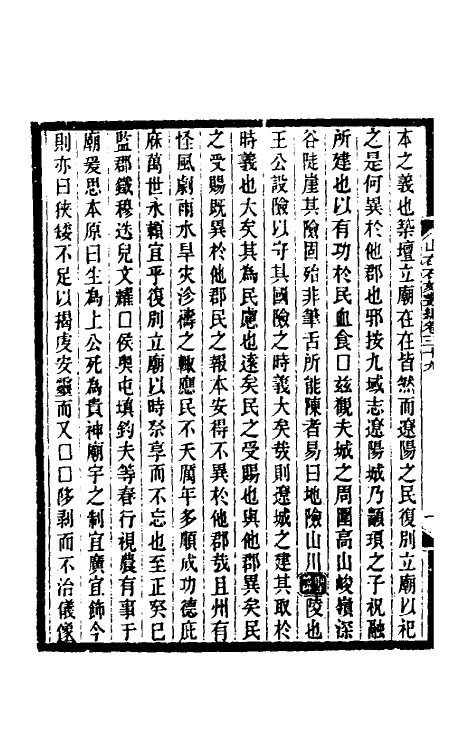 本之義也築壇立廟在在皆然而遼陽之民復別立廟以祀
之是何異於他郡也邪按九域志遼陽城乃顓頊之子祝融
所建也以有功於民血食□茲觀夫城之周圍高山峻嶺深
谷陡崖其險固殆非筆舌所能陳者易曰地險山川陵也
王公設險以守其國險之時義大矣哉則遼城之建其取於
時義也大矣其為民慮也遠矣民之受賜也與他郡異矣民
之受賜既異於他郡民之報本安得不異於他郡哉且州有
怪風劇雨水旱灾沴禱之輙應民不夭厲年多順成功德庇
庥萬世永賴宜乎復別立廟以時祭享而不忘也至正癸巳
監郡鐵穆迭兒文耀□侯與屯填鈞夫等春行視農有事于
廟爰思本原曰生為上公死為貴神廟宇之制宜廣宜飾今
則亦曰挾
不足以揭虔安靈而又□□陊剥而不治儀像
山右石刻叢編卷三十九